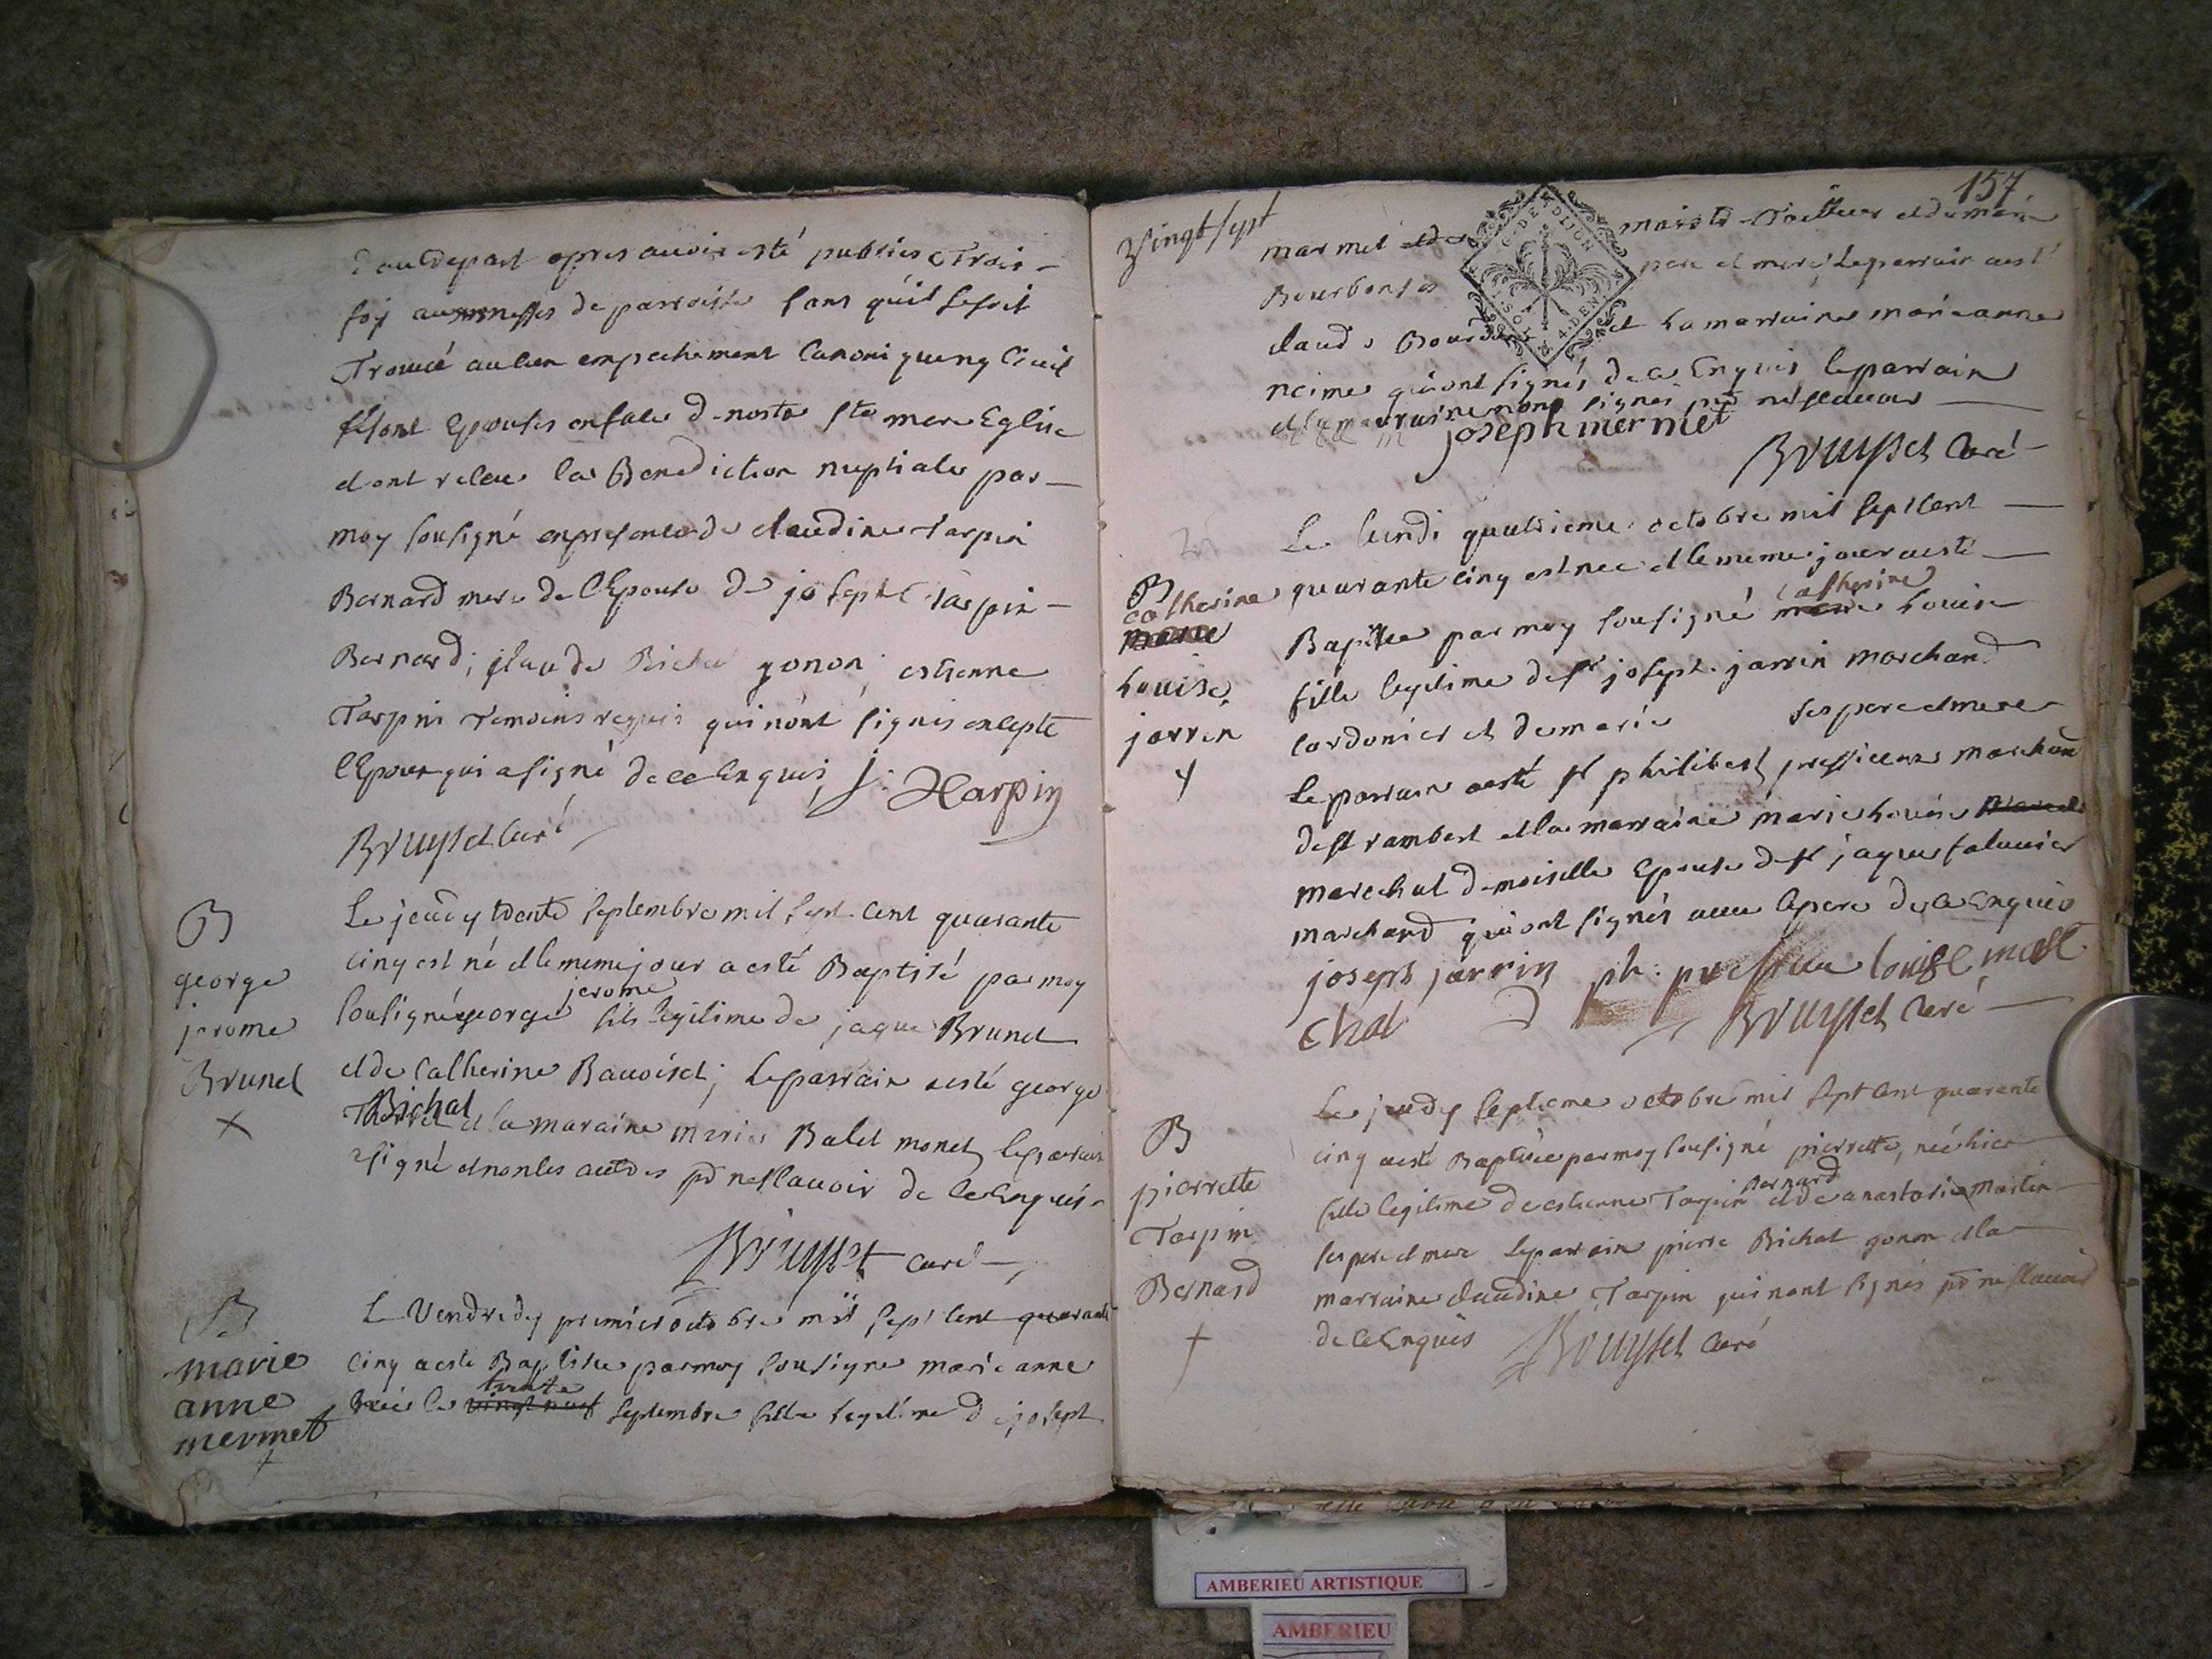 daudepart apres avoir esté publiés Trois -
foy aux messes de parroisse sans quil se soit
Trouvé aucun empechement Canonique ny Civil
se sont Epousés en face de nostre ste mere Eglise
et ont receu la Benediction nuptiale par -
moy sousigné en presence de claudine tarpin
Bernard mere de l'Epouse de joseph tarpin -
Bernard, claude Bichat gonon, estienne
Tarpin temoins requis qui n'ont signés excepté
l'Epoux qui a signé de ce Enquis J: Tarpin
Bruyset Curé
B
george
jerome
Brunet
x
Le jeudy trente septembre mil sept cent quarante
cinq est né et le meme jour a esté Baptisé par moy
sousigné george jerome fils legitime de jaque Brunet
et de Catherine Bavoiset; le parrain a esté george
Bichat et la maraine marie Balet monet, le parrain
a signé et non les autres pr ne scavoir de ce Enquis -
Bruyset curé
B
marie
anne
mermet
+
Le Vendredy premier octobre mil sept cent quarante
cinq a esté Baptisée par moy sousigné marie anne
née le vingt neuf trente septembre fille legitime de joseph
157
Vingt sept
C. DE DION
4. DEN
marmet et de
maistre Tailleur et de marie
Bourbon ses
pere et mere; le parrain a esté
claude Bourdon
et la marraine marie anne
neime qui ont signés de ce Enquis le parrain
et la marraine non signés pr ne scavoir
joseph mermet
Bruyset Curé
B
catherine
marie
Louise
jarrin
+
Le lundi quatrieme octobre mil sept cent
quarante cinq est née et le meme jour a esté
Baptisée par moy sousigné marie catherine Louise
fille legitime de sr joseph jarrin marchand
cordonier et de marie ses pere et mere
Le parrain a esté sr philibert pressieux marchand
de st rambert et la marraine marie Louise
marechal demoiselle Epouse de sr jaque
marchand qui ont signés avec le pere de ce Enquis
joseph jarrin ph: louise mare
chal
Bruyset Curé
B
pierrette
Tarpin
Bernard
+
Le jeudy septieme octobre mil sept cent quarante
cinq a esté Baptisée par moy sousigné pierrette, née hier
fille legitime de estienne Tarpin Bernard et de anastasie Martin
ses pere et mere le parrain pierre Bichat gonon et la
marraine claudine Tarpin qui n'ont signés pr ne scavoir
de ce Enquis Bruyset Curé
AMBERIEU ARTISTIQUE
AMBERIEU